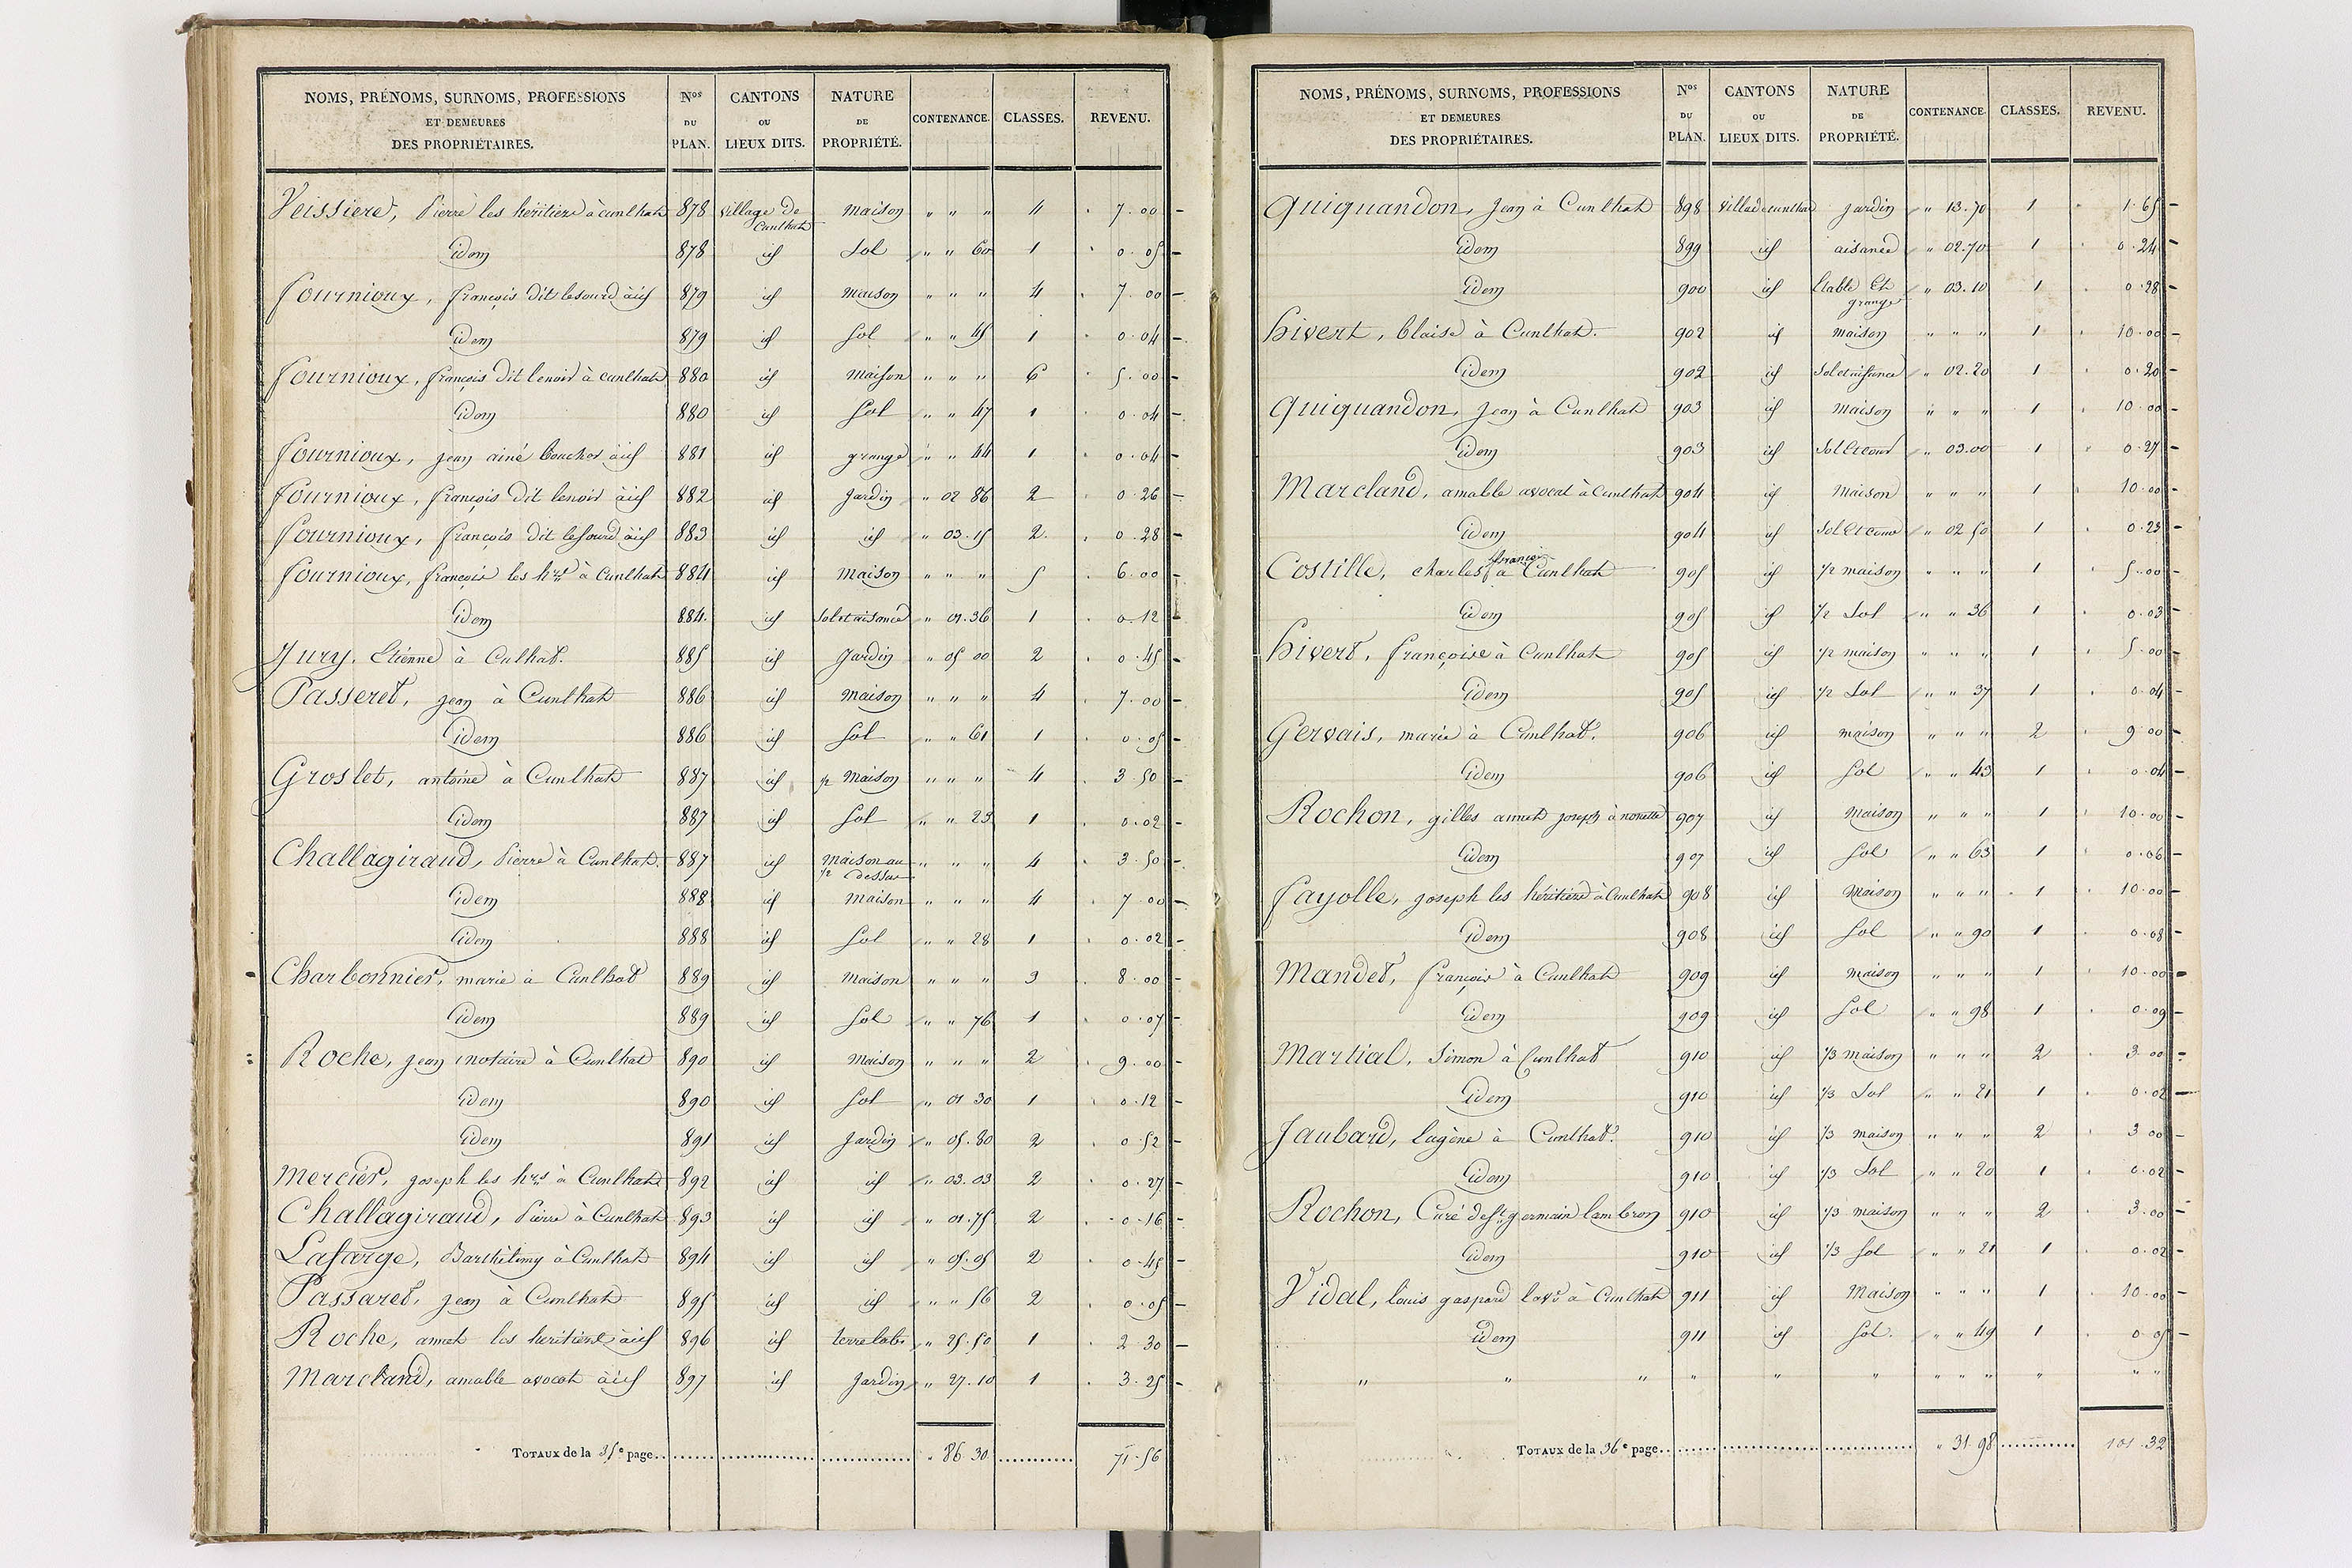 NOMS, PRÉNOMS, SURNOMS, PROFESSIONS ET DEMEURES DES PROPRIÉTAIRES. Nos DU PLAN. CANTONS OU LIEUX DITS. NATURE DE PROPRIÉTÉ. CONTENANCE. CLASSES. REVENU.
Veissiere, Pierre les héritiers à Cunlhat 878 village de Cunlhat maison " " " 4 7.00
Idem 878 id Sol " " 60 1 0.05
fournioux, françois dit lesourd à id 879 id maison " " " 4 7.00
Idem 879 id Sol " " 45 1 0.04
fournioux, françois dit lenoir à cunlhat 880 id Maison " " " 6 5.00
Idem 880 id Sol " " 47 1 0.04
fournioux, jean ainé boucher à id 881 id grange " " 44 1 0.04
fournioux, françois dit lenoir à id 882 id Jardin " 02 86 2 0.26
fournioux, françois dit lesourd à id 883 id id " 03.15 2 0.28
fournioux, françois les hrs à Cunlhat 884 id Maison " " " 5 6.00
Idem 884 id Sol et aisance " 01.36 1 0.12
Jury, Etienne à Culhat. 885 id Jardin " 05 00 2 0.45
Passeret, jean à Cunlhat 886 id maison " " " 4 7.00
Idem 886 id Sol " " 61 1 0.05
Groslet, antoine à Cunlhat 887 id ½ Maison " " " 4 3.50
Idem 887 id Sol " " 23 1 0.02
Challagiraud, Pierre à Cunlhat. 887 id ½ Maison au dessus " " " 4 3.50
Idem 888 id maison " " " 4 7.00
Idem 888 id Sol " " 28 1 0.02
Charbonnier, marie à Cunlhat 889 id Maison " " " 3 8.00
Idem 889 id Sol " " 76 1 0.07
Roche, jean notaire à Cunlhat 890 id Maison " " " 2 9.00
Idem 890 id Sol " 01 30 1 0.12
Idem 891 id Jardin " 05.80 2 0.52
Mercier, joseph les hrs à Cunlhat 892 id id " 03.03 2 0.27
Challagiraud, Pierre à Cunlhat 893 id id " 01.75 2 0.16
Lafarge, Barthélemy à Cunlhat 894 id id " 05.05 2 0.45
Passaret, jean à Cunlhat 895 id id " " 56 2 0.05
Roche, amet les heritiers à id 896 id terre lab. " 25.50 1 2 30
Marcland, amable avocat à id 897 id Jardin " 27.10 1 3.25
TOTAUX de la 35e page " 86 30 71.56
NOMS, PRÉNOMS, SURNOMS, PROFESSIONS ET DEMEURES DES PROPRIÉTAIRES. Nos DU PLAN. CANTONS OU LIEUX DITS. NATURE DE PROPRIÉTÉ. CONTENANCE. CLASSES. REVENU.
Quiquandon, Jean à Cunlhat 898 jardin " 13.70 1 1.65
Idem 899 id aisance " 02.70 1 0.24
Idem 900 id Etable Et grange " 03.10 1 0.28
hivert, blaise à Cunlhat. 902 id maison " " " 1 10.00
Idem 902 id Sol et aisance " 02.20 1 0.20
Quiquandon, Jean à Cunlhat 903 id maison " " " 1 10.00
Idem 903 id Sol Et cour " 03.00 1 0.27
Marcland, amable avocat à Cunlhat 904 id Maison " " " 1 10.00
Idem 904 id Sol Et cour " 02 50 1 0.23
Costille, charles françois à Cunlhat 905 id ½ maison " " " 1 5.00
Idem 905 id ½ Sol " " 36 1 0.03
hivert, françoise à Cunlhat 905 id ½ maison " " " 1 5.00
Idem 905 id ½ Sol " " 37 1 0.04
Gervais, marie à Cunlhat. 906 id maison " " " 2 9 00
Idem 906 id Sol " " 43 1 0.04
Rochon, gilles annet joseph à nonette 907 id Maison " " " 1 10.00
Idem 907 id Sol " " 63 1 0.06
fayolle, joseph les héritiers à Cunlhat 908 id Maison " " " 1 10.00
Idem 908 id Sol " " 90 1 0.08
Mandet, françois à Cunlhat 909 id Maison " " " 1 10.00
Idem 909 id Sol " " 98 1 0.09
Martial, Simon à Cunlhat 910 id 1/3 maison " " " 2 3.00
Idem 910 id 1/3 Sol " " 21 1 0.02
Jaubard, Eugène à Cunlhat. 910 id 1/3 maison " " " 2 3 00
Idem 910 id 1/3 Sol " " 20 1 0.02
Rochon, Curé de St germain lembron 910 id 1/3 maison " " " 2 3.00
Idem 910 id 1/3 Sol " " 21 1 0.02
Vidal, louis gaspard à Cunlhat 911 id Maison " " " 1 10.00
Idem 911 id Sol. " " 49 1 0.05
" " " " " " " " " " " "
TOTAUX de la 36e page " 31.98 101.32